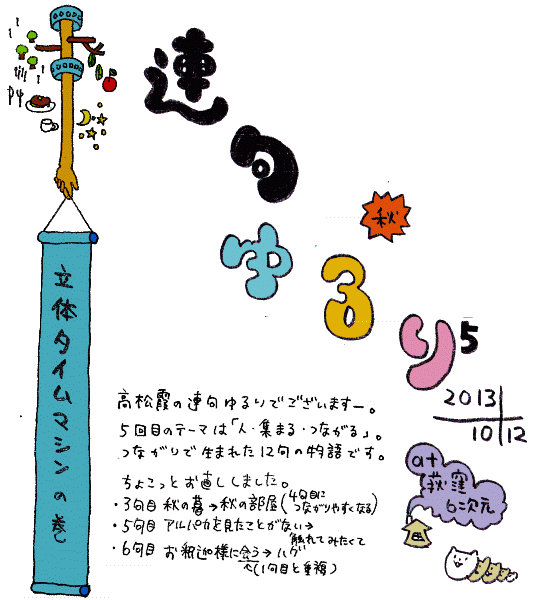 連句
ゆるり5
秋
2013
10 12
at
荻窪
6次元
立体タイムマシンの巻
高松霞の連句ゆるりでございますー。
5回目のテーマは「人・集まる・つながる」。
つながりで生まれた12句の物語です。
ちょこっとお直ししました。
・3句目 秋の暮→秋の部屋(4句目につながりやすくなる)
・5句目 アルパカを見たことがない→触れてみたくて
・6句目 お釈迦様に会う→ハグ
(1句目と重複)